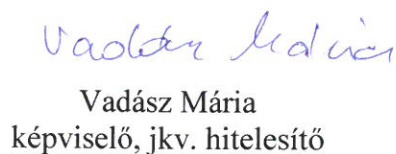 Vadász Mária
Vadász Mária
képviselő, jkv. hitelesítő